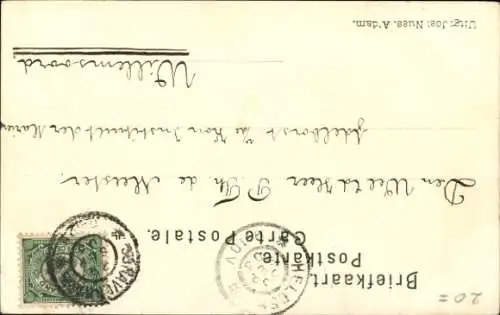 Briefkaart.
Postkarte.
Carte Postale.
Den WelEd. Heer P. Th. de Meester.
Adelborst
Kon Instituut der Marine
Willemsoord.
Uitg: Jos: Nuss. A'dam.
'S GRAVENHAGE
HELDER
NOV
20=